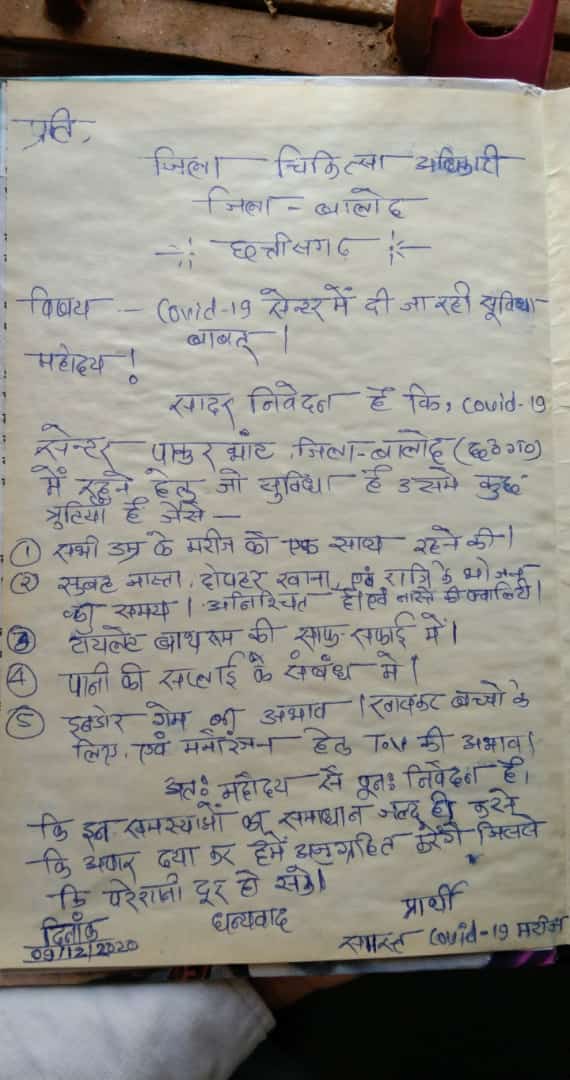 प्रति,
जिला चिकित्सा अधिकारी
जिला - बालोद
छत्तीसगढ़
विषय - Covid-19 सेन्टर में दी जा रही सुविधा
बाबत् ।
महोदय !
सादर निवेदन है कि, covid-19
सेन्टर पाकुरभाट, जिला-बालोद (छ०ग०)
में रहने हेतु जो सुविधा है उसमे कुछ
त्रुटिया है जैसे -
① सभी उम्र के मरीज को एक साथ रहने की।
② सुबह नास्ता, दोपहर खाना, एवं रात्रि के भोजन
का समय । अनिश्चित है। एवं नास्ते की क्वालिटी।
③ टायलेट बाथरूम की साफ-सफाई में।
④ पानी की सप्लाई के संबंध में।
⑤ इनडोर गेम का अभाव । खासकर बच्चो के
लिए, एवं मनोरंजन हेतु T.V की अभाव।
अतः महोदय से पुनः निवेदन है।
कि इन समस्याओं का समाधान जल्द ही करने
कि अपार दया कर हमें अनुग्रहित करेंगे जिससे
कि परेशानी दूर हो सके।
धन्यवाद
प्रार्थी
दिनाँक
09/12/2020
समस्त Covid-19 मरीज